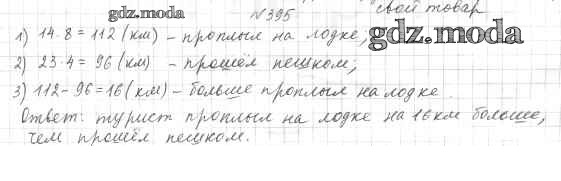 gdz.moda
№395 свой товар
1) 14·8=112 (км) – проплыл на лодке;
gdz.moda
2) 23·4=96 (км) – прошёл пешком;
3) 112–96=16 (км) – больше проплыл на лодке.
Ответ: турист проплыл на лодке на 16 км больше,
чем прошёл пешком.